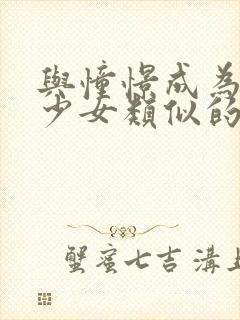 與憧憬成為
少女類似的
蟹蜜七吉溝上